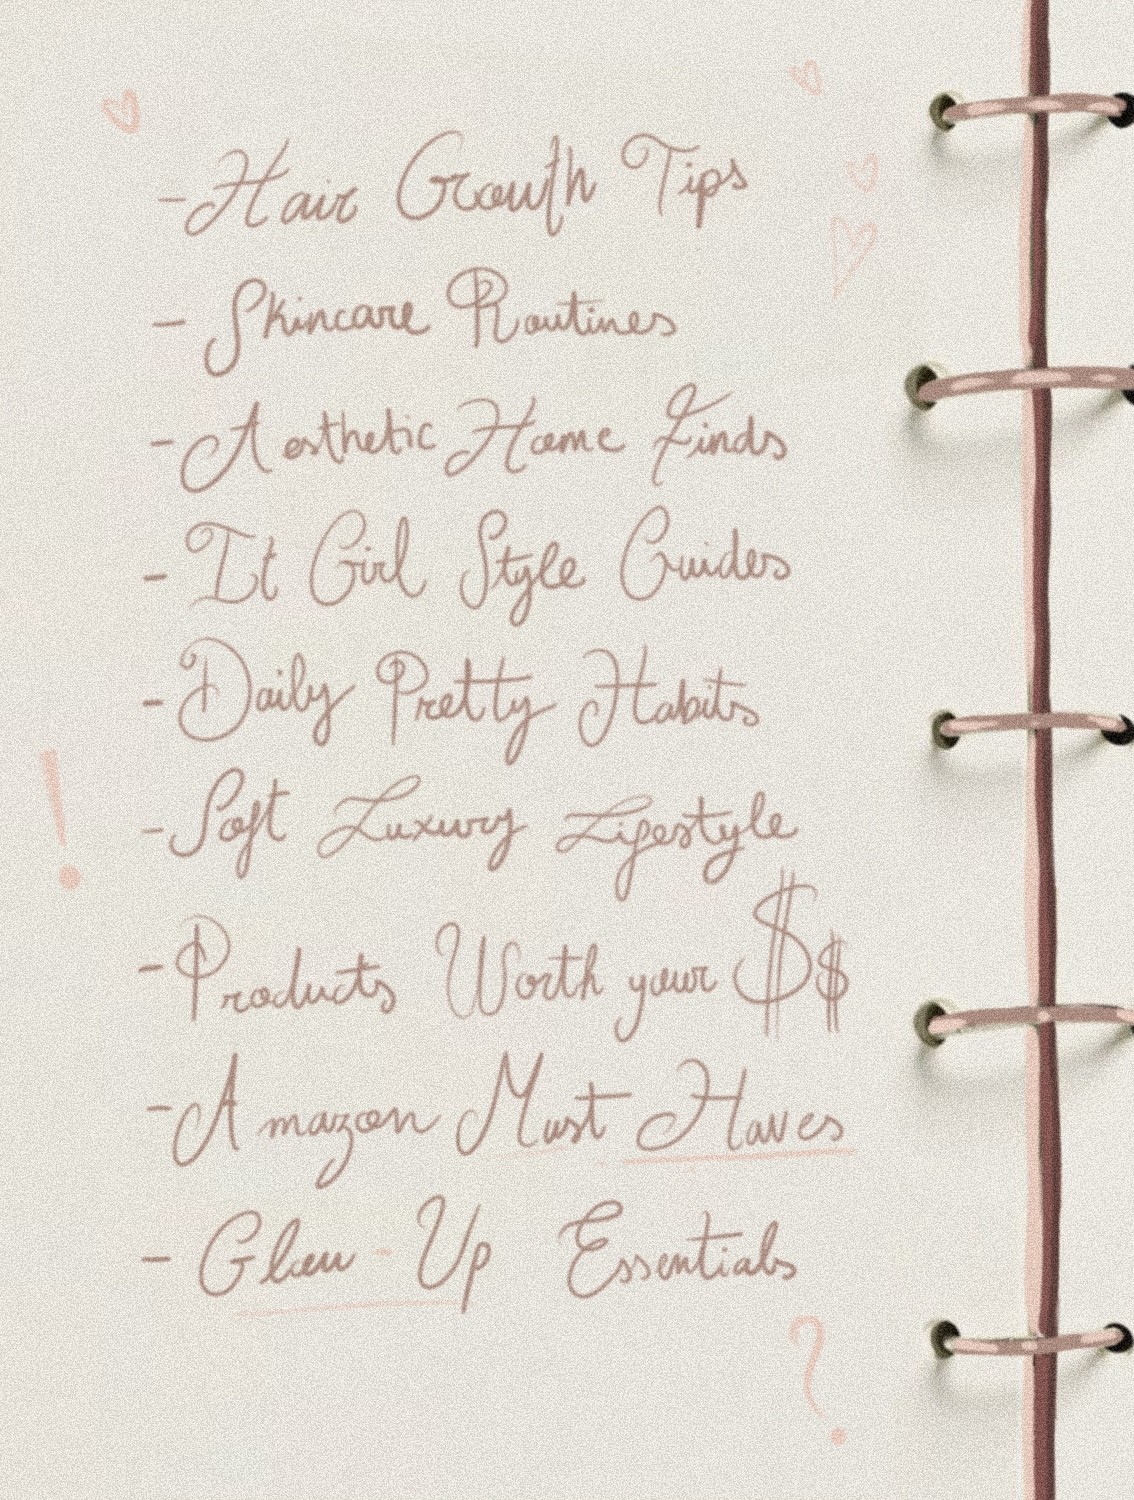 - Hair Growth Tips
- Skincare Routines
- Aesthetic Home Finds
- It Girl Style Guides
- Daily Pretty Habits
- Soft Luxury Lifestyle
- Products Worth your $$
- Amazon Must Haves
- Glow-Up Essentials
!
?